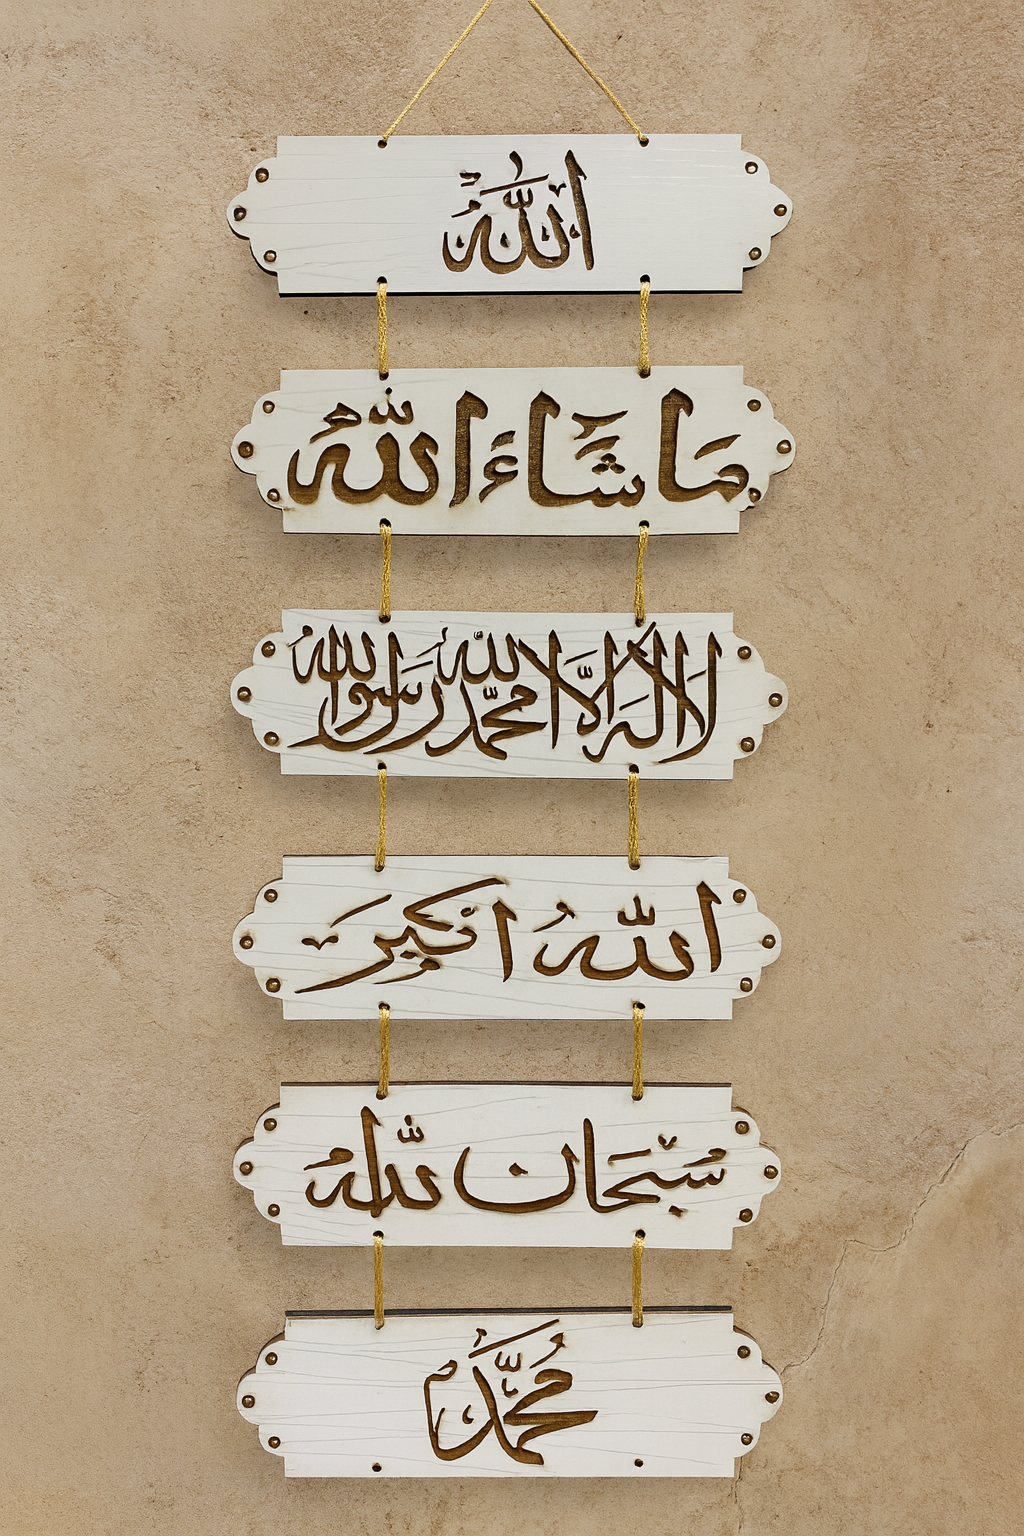 الله
ما شاء الله
لا إله إلا الله محمد رسول الله
الله اكبر
سبحان الله
محمد